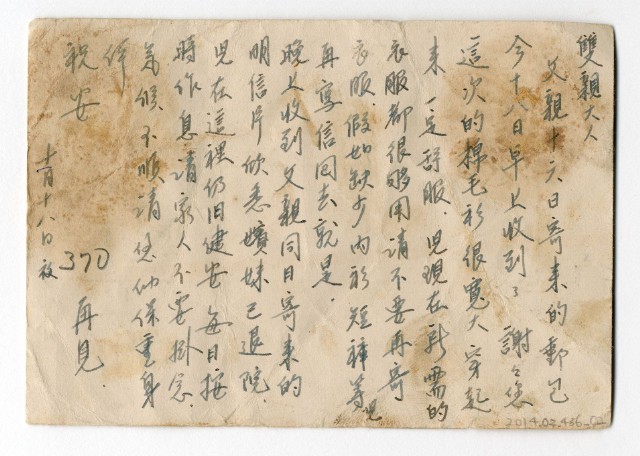 雙親大人
父親十六日寄來的郵包
今十八日早上收到了 謝々您
這次的棉毛衫很寬大穿起
來一定舒服．兒現在所需的
衣服都很够用請不要再寄
衣服．假如缺少內衫短褲等兒
再寫信回去就是．
晚上收到父親同日寄來的
明信片欣悉嬪妹已退院．
兒在這裡仍旧健安 每日按
時作息請家人不要掛念．
氣候不順請您們保重身
体
祝安
370 再見．
十一月十八日夜
2014.04.486_02